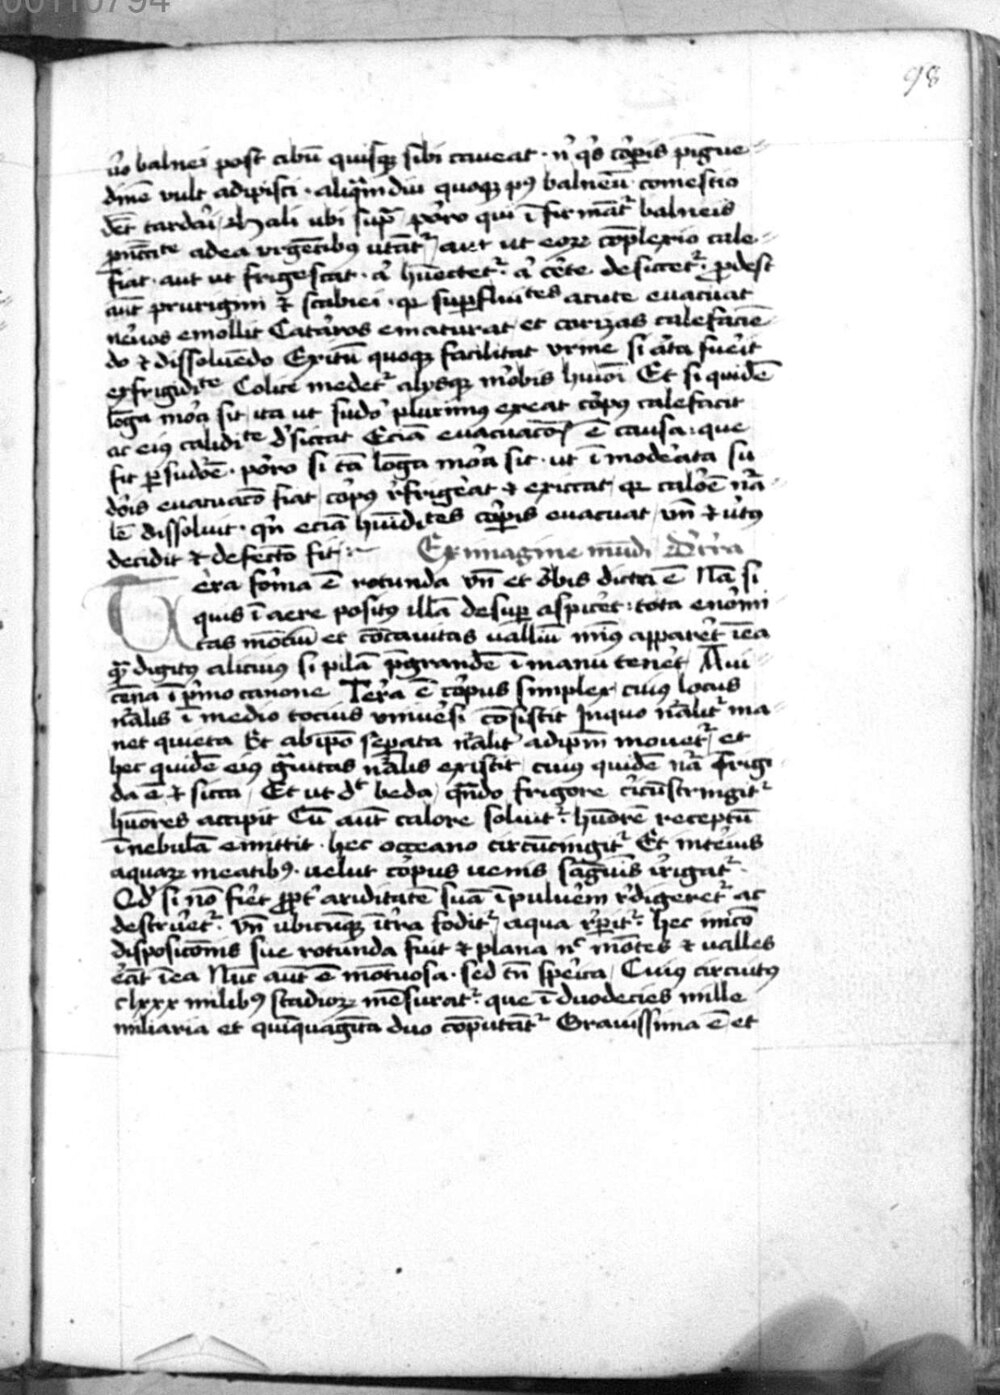 00110794
98
v͛o balnei post cibū quisqȝ sibi caveat · n͛ q͛s corꝑis pigwe⸗
dinē vult adipisci · aliqͣmdiu quoqȝ pꝰ balneū comestio
dēt tardari Haly ubi supͣ poͬro qui ī firmāt balneis
adea vrgētibus utāt᷑ / aut ut eoꝝ cōplexio cale⸗
fiat · aut ut frigescat · aͭ hūectet᷑ · aͭ ceͬte desiccet᷑ · ꝓdest
aūt prurigini ⁊ scabiei · qꝛ suꝑfluitᵉˢ acute evacuat
neͬvos emollit Cataͬros ematurat et corizas calefaciē⸗
do ⁊ dissolvēdo Exitū quoqȝ facilitat vrine si aͬta fueͬit
ex frigidiᵗᵉ Colice medet᷑ alysqȝ moͬbis huioī Et si quidē
lōga moͬa sit ita ut sudoͬ plurimꝰ exeat coͬpꝰ calefacit
ac eiꝰ calidiᵗᵉ dͤsiccat Eciā evacuacōis ē causa : que
fit ꝑ sudoͬē · poͬro si tā lōga moͬa sit · ut ī modeͬata su
doͬis evacuacō fiat / coͬpꝰ rͤfrigeͬat ⁊ exiccat / qꝛ caloͬē nͣa
lē dissolvit · qn̄ eciā hūiditᵉˢ corꝑis evacuat / vn̄ ⁊ v͛tꝰ
decidit ⁊ defectō fit :
Ex imagine mūdi De tͬra
Teͬra foͬma ē rotunda vn̄ et oͬbis dicta ē Nā si
quis ī aere positꝰ illā desuꝑ aspiceͬt : tota enoͬmi
tas mōciū et cōcavitas valliū minꝰ appareͬt ī ea
qͣ digitꝰ alicuiꝰ si pilā pͬgrandē ī manu teneͬt Avi
cēna ī pͥmo canone Teͬra ē coͬpus simplex / cuiꝰ locus
nͣalis ī medio tocius univeͬsi cōsistit In quo nͣalit᷑ ma
net quieta Et ab ip̄o seꝑata nͣalit᷑ ad ip̄m movet᷑ / et
hec quidē eiꝰ gͣvitas nͣalis existit / cuiꝰ quidē nͣa frigi
da ē ⁊ sicca / Et ut dᵗ beda / qͣndo frigore ciͬcūstringit᷑
hūores accipit Cū aūt calore solvit᷑ · hūorē receptū
ī nebulā emittit · hec occeano circūcingit᷑ Et inteͬius
aquaꝝ meatibꝰ · velut coͬpus venis sāgwis iͬrigat᷑ ·
Qd͛ si nō fieͬt ꝓpͭ ariditatē suā ī pulveͬem rͤdigeret᷑ ac
destrueͬt᷑ · vn̄ ubicūqȝ ī tͬra fodit᷑ / aqua rͤꝑit᷑ · hec inicō
disposicōnis sue rotunda fuit ⁊ plana nᶜ mōtes ⁊ valles
eͬāt ī ea Nūc aut ē mōtuosa · sed tn̄ speͬica / Cuiꝰ circuitꝰ
clxxx milibꝰ stadioꝝ mēsurat᷑ · que ī duodecies mille
miliaria et quīquagīta duo cōputāt᷑ Gravissima ē et